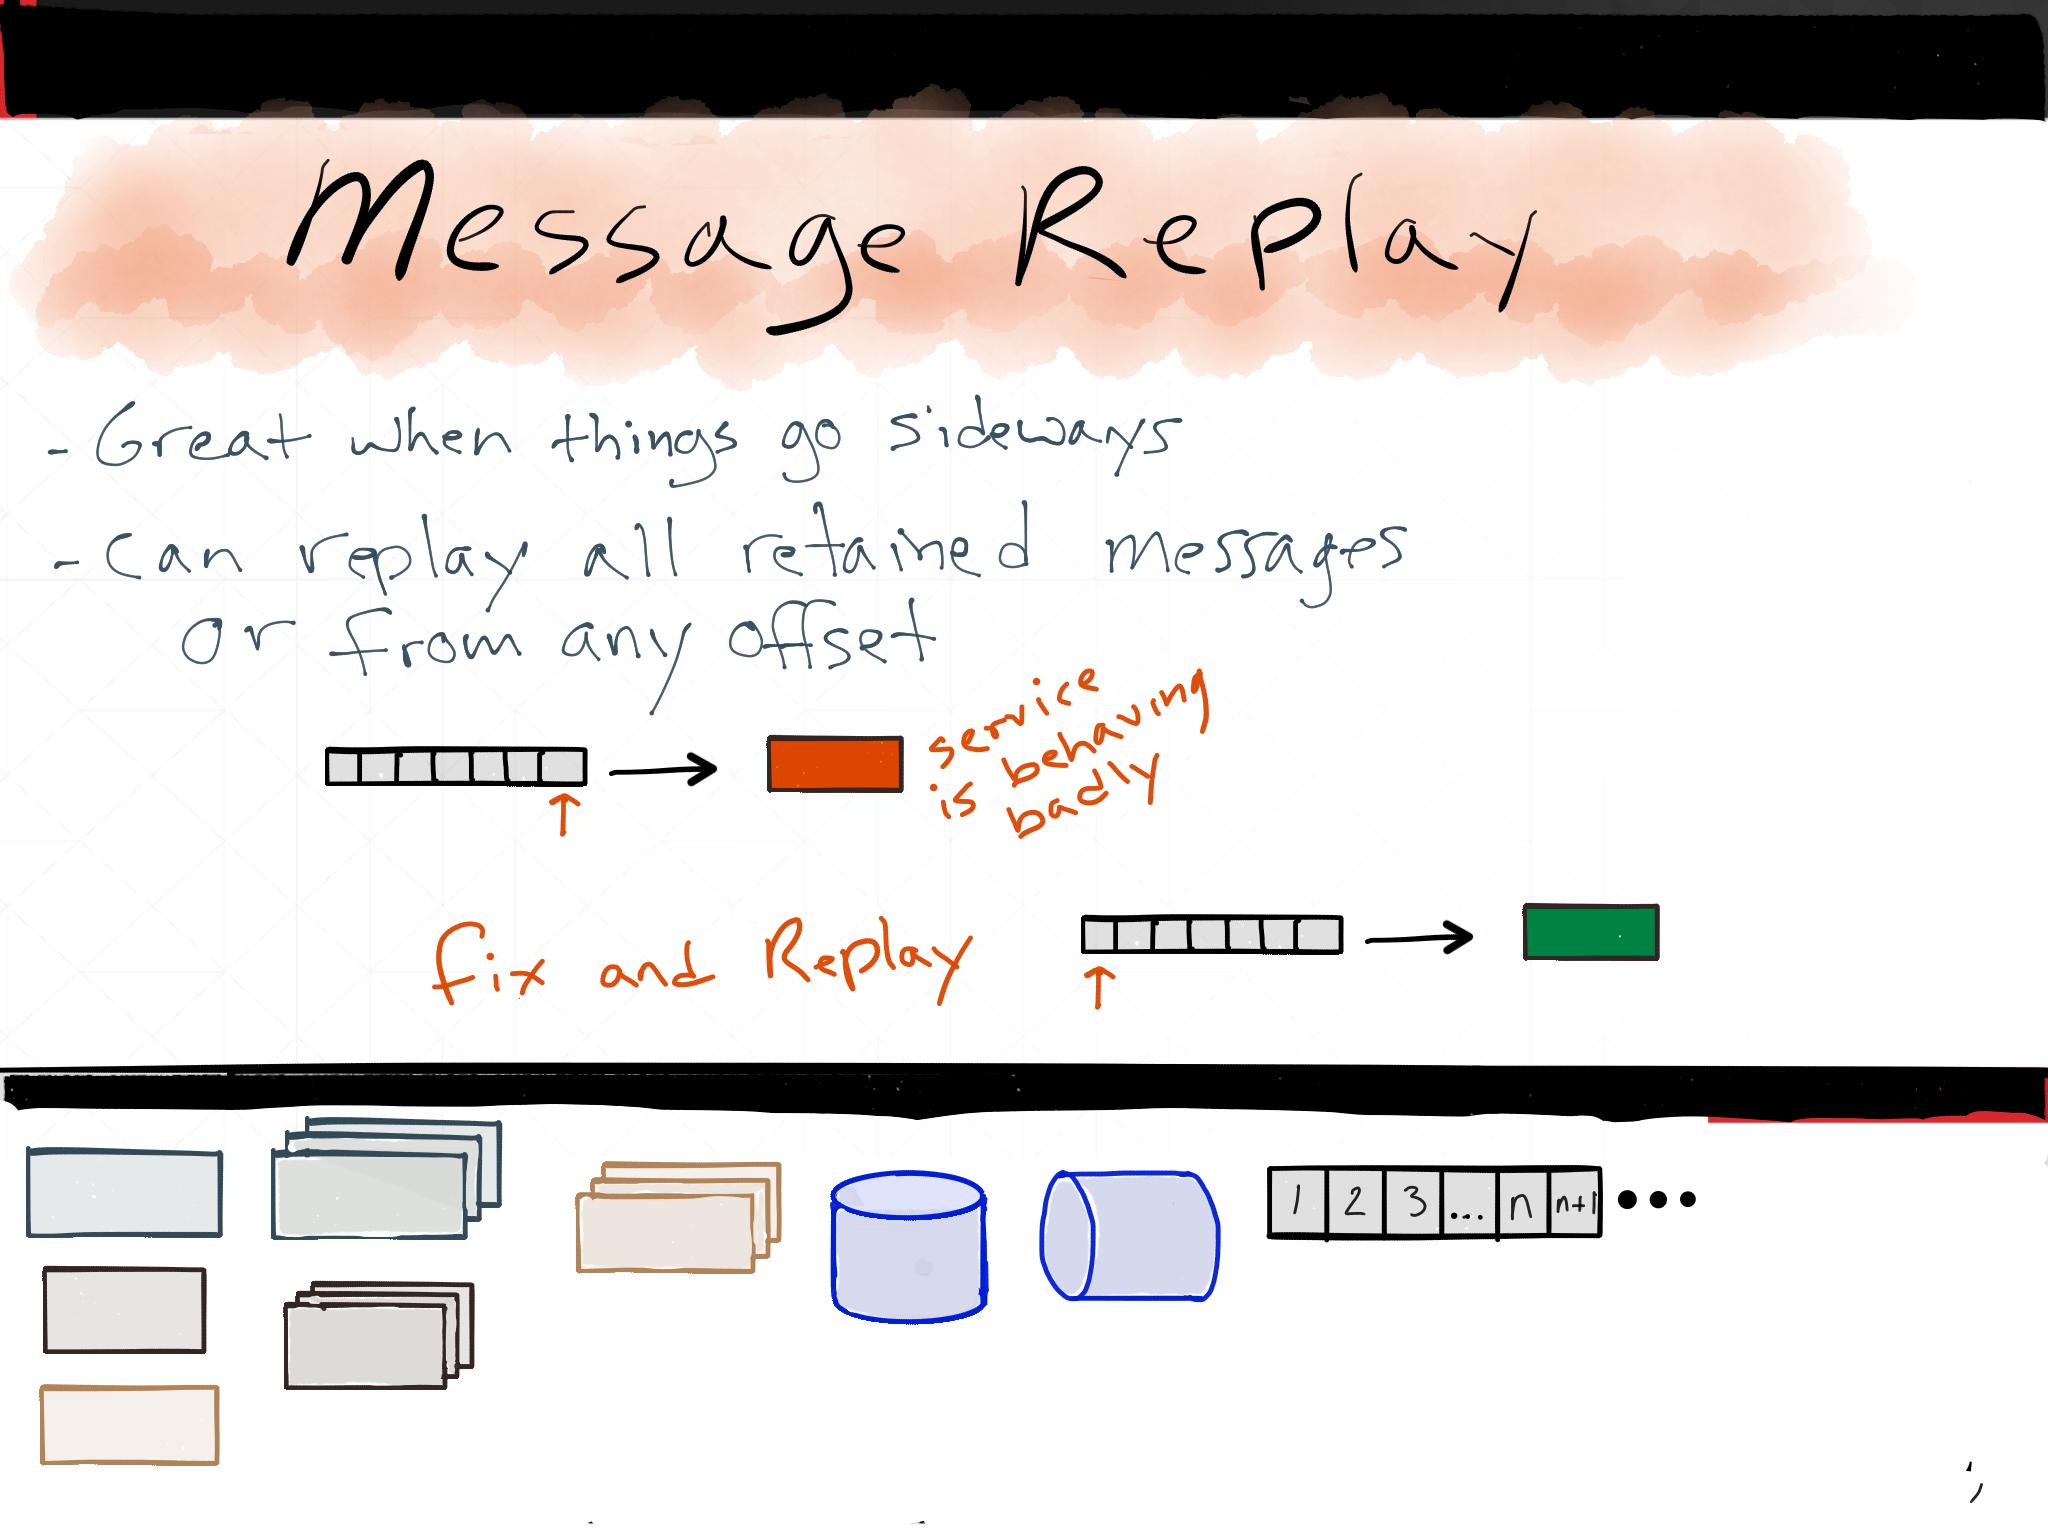 Message Replay
- Great when things go sideways
- Can replay all retained messages
or from any offset
service
is behaving
badly
fix and Replay
1 2 3 ... n n+1 •••